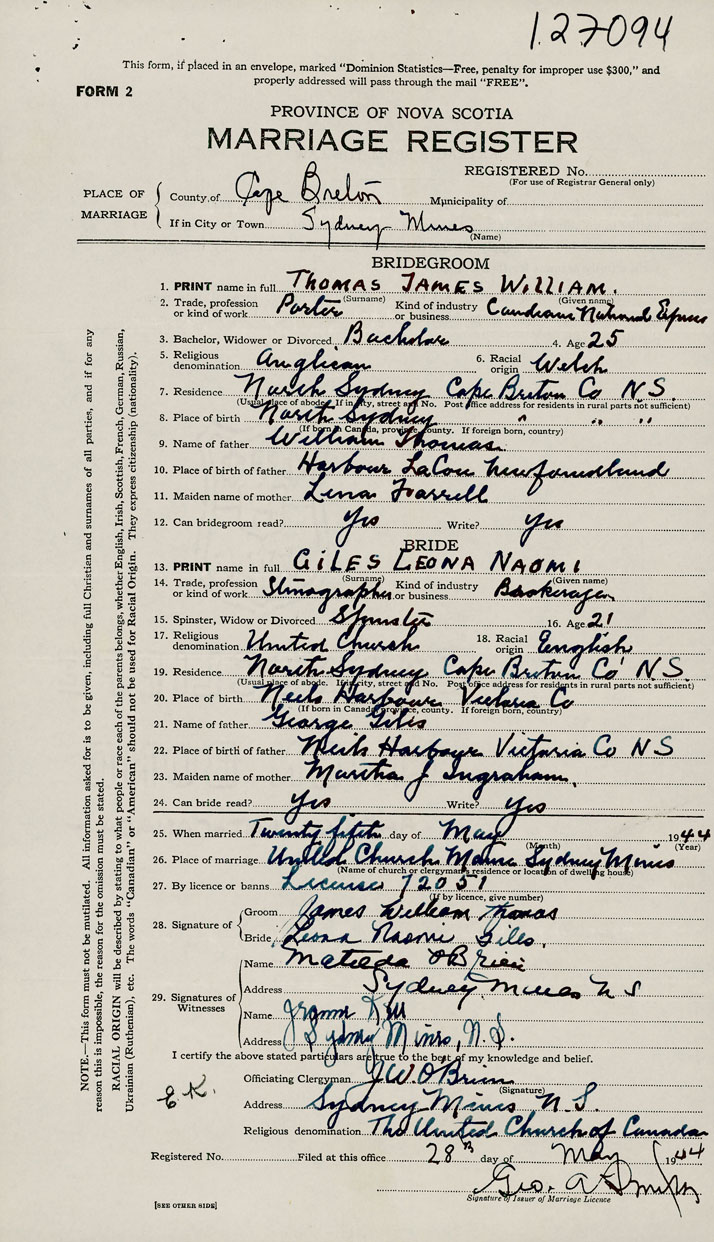 127094
This form, if placed in an envelope, marked "Dominion Statistics—Free, penalty for improper use $300," and
properly addressed will pass through the mail "FREE".
FORM 2
PROVINCE OF NOVA SCOTIA
MARRIAGE REGISTER
REGISTERED No.
(For use of Registrar General only)
PLACE OF MARRIAGE
County of Cape Breton Municipality of
If in City or Town Sydney Mines
(Name)
BRIDEGROOM
1. PRINT name in full THOMAS JAMES WILLIAM.
(Surname) (Given name)
2. Trade, profession or kind of work Porter Kind of industry or business Canadian National Express
3. Bachelor, Widower or Divorced Bachelor 4. Age 25
5. Religious denomination Anglican 6. Racial origin Welch
7. Residence North Sydney Cape Breton Co N.S.
(Usual place of abode. If in city, street and No. Post office address for residents in rural parts not sufficient)
8. Place of birth North Sydney " " "
(If born in Canada, province, county. If foreign born, country)
9. Name of father William Thomas
10. Place of birth of father Harbour LaCou Newfoundland
11. Maiden name of mother Lena Farrell
12. Can bridegroom read? Yes Write? Yes
BRIDE
13. PRINT name in full GILES LEONA NAOMI
(Surname) (Given name)
14. Trade, profession or kind of work Stenographer Kind of industry or business Brokerage
15. Spinster, Widow or Divorced Spinster 16. Age 21
17. Religious denomination United Church 18. Racial origin English
19. Residence North Sydney Cape Breton Co N.S.
(Usual place of abode. If in city, street and No. Post office address for residents in rural parts not sufficient)
20. Place of birth Neils Harbour Victoria Co
(If born in Canada, province, county. If foreign born, country)
21. Name of father George Giles
22. Place of birth of father Neils Harbour Victoria Co NS
23. Maiden name of mother Martha J Ingraham
24. Can bride read? Yes Write? Yes
25. When married Twenty fifth day of May 1944
(Month) (Year)
26. Place of marriage United Church Manse Sydney Mines
(Name of church or clergyman's residence or location of dwelling house)
27. By licence or banns License 72051
(If by licence, give number)
28. Signature of
Groom James William Thomas
Bride Leona Naomi Giles.
29. Signatures of Witnesses
Name Matilda O'Brien
Address Sydney Mines N S
Name
Address Sydney Mines, N.S.
I certify the above stated particulars are true to the best of my knowledge and belief.
Officiating Clergyman J.W. O'Brien
(Signature)
E.K.
Address Sydney Mines N.S.
Religious denomination The United Church of Canada
Registered No. Filed at this office 28th day of May 1944
Geo. A Smith
Signature of Issuer of Marriage Licence
[SEE OTHER SIDE]
NOTE.—This form must not be mutilated. All information asked for is to be given, including full Christian and surnames of all parties, and if for any
reason this is impossible, the reason for the omission must be stated.
RACIAL ORIGIN will be described by stating to what people or race each of the parents belongs, whether English, Irish, Scottish, French, German, Russian,
Ukrainian (Ruthenian), etc. The words "Canadian" or "American" should not be used for Racial Origin. They express citizenship (nationality).